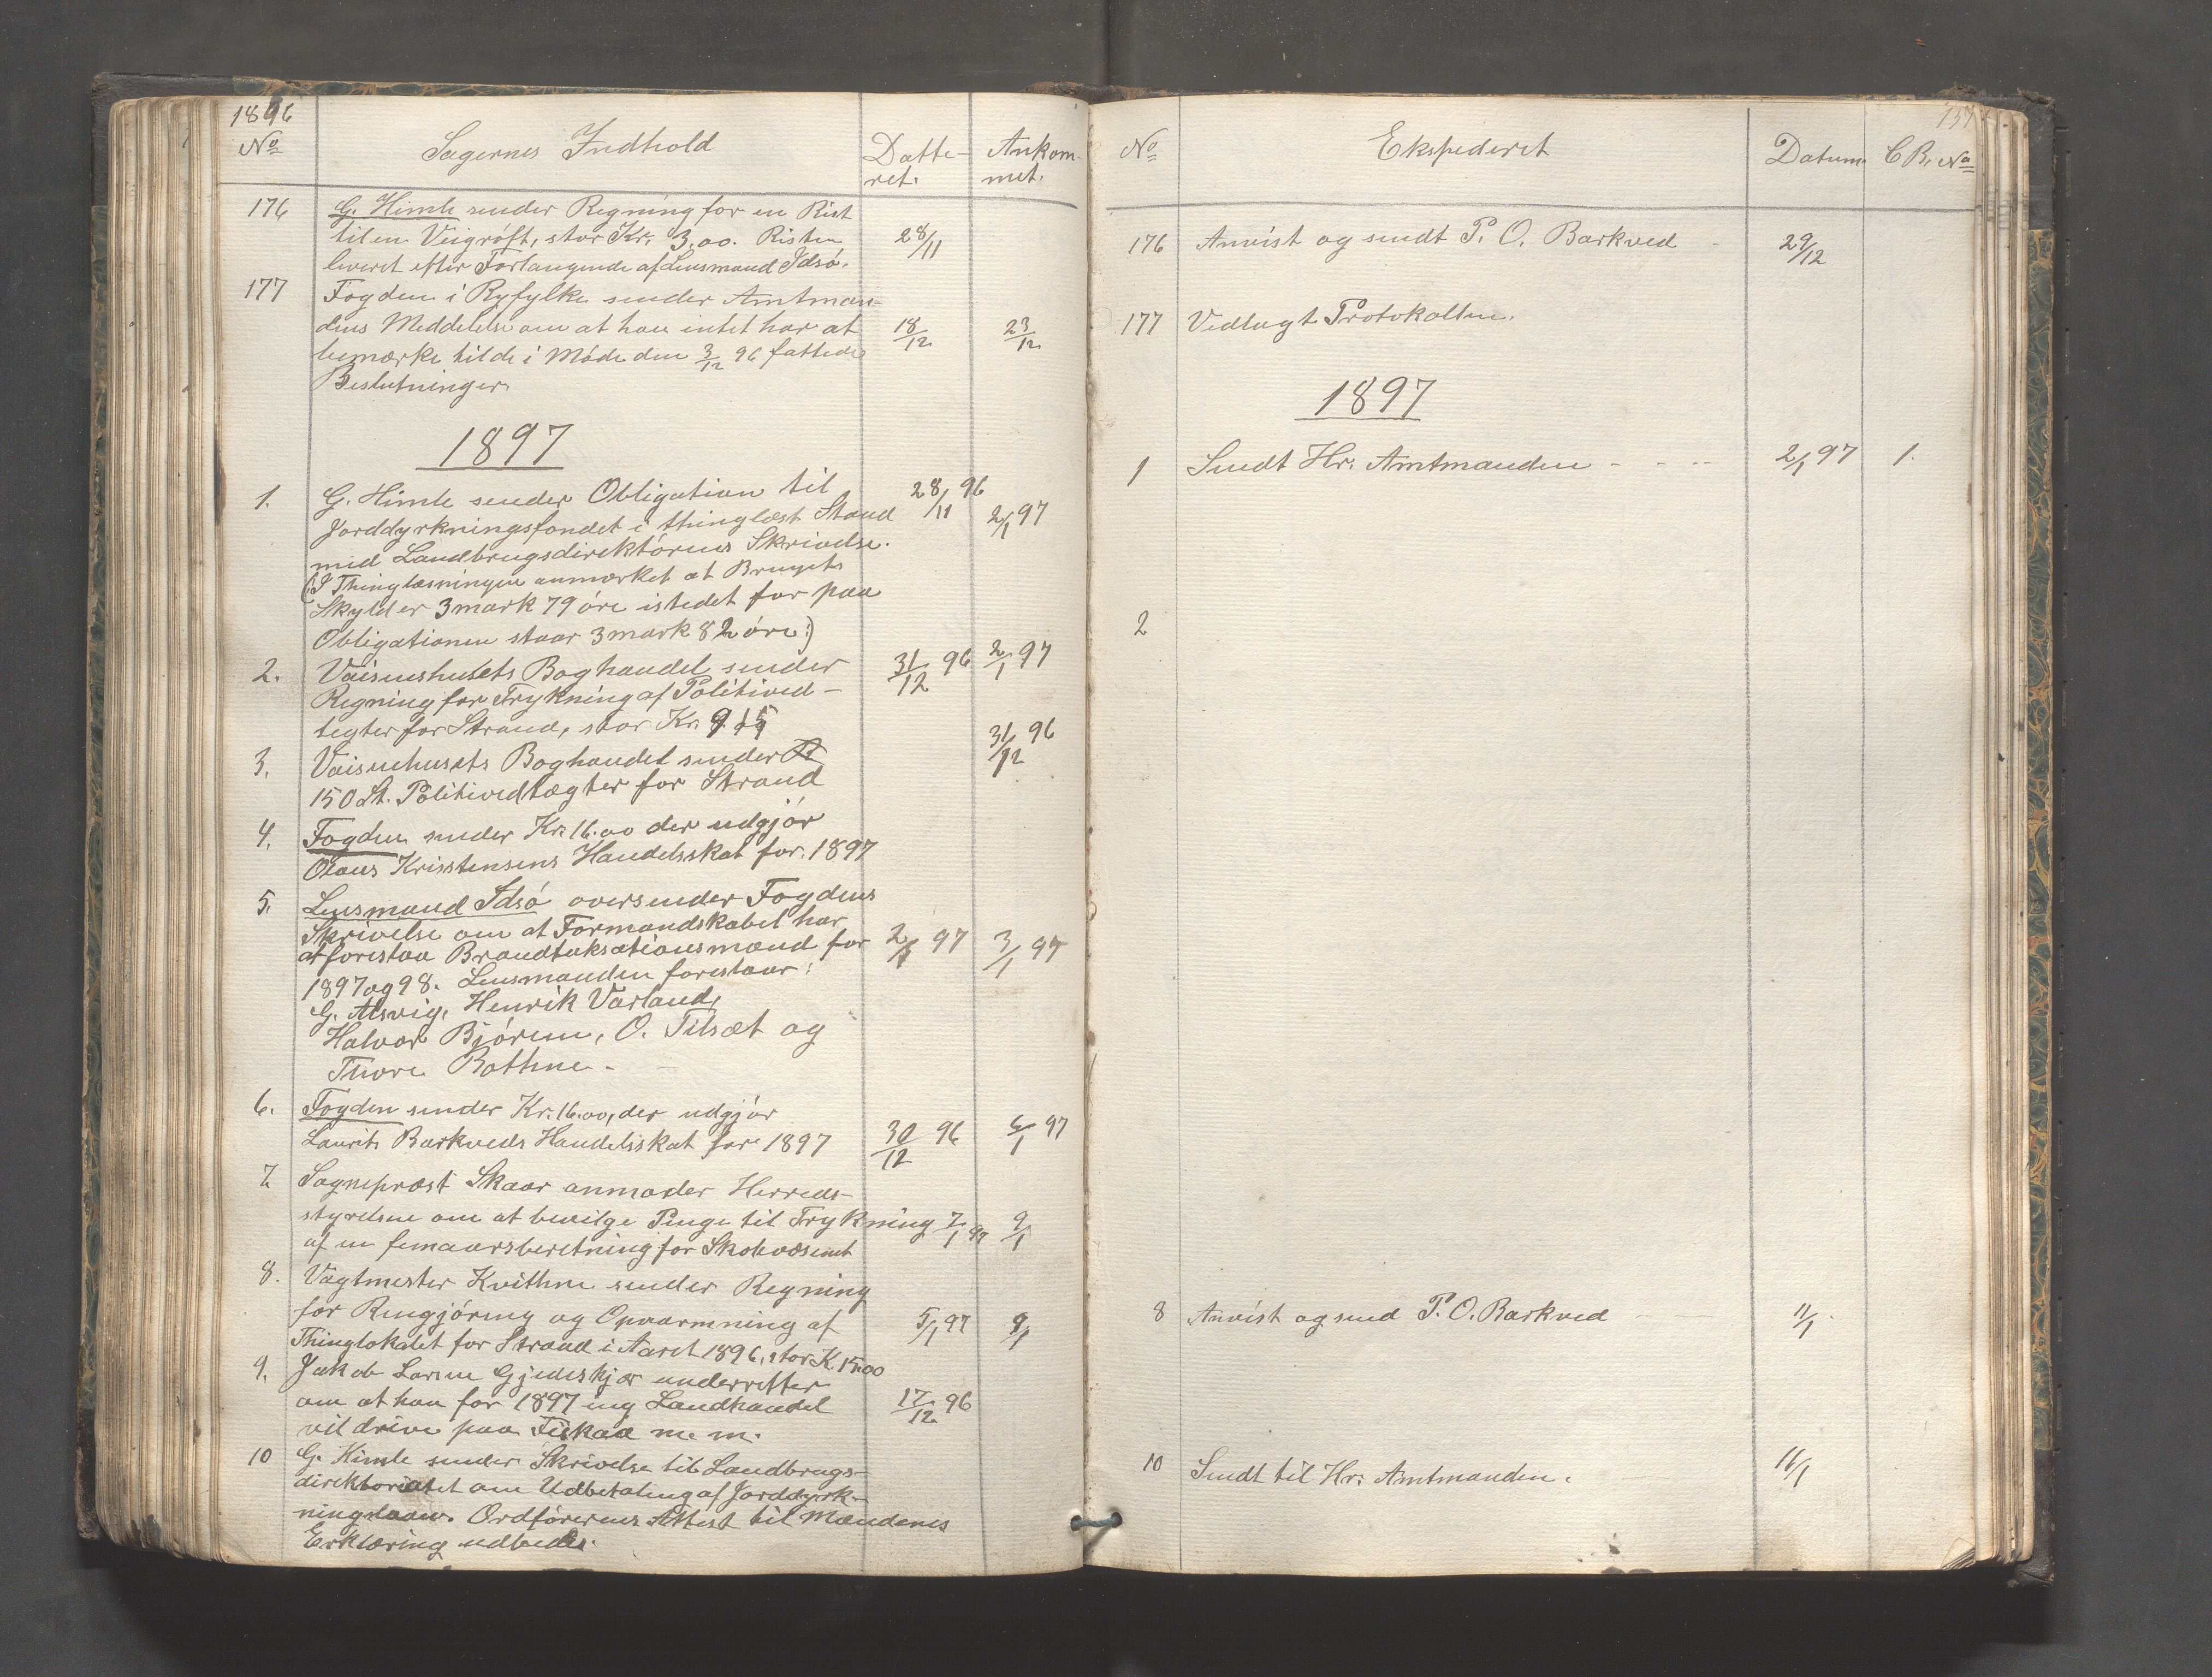 1896
No
Sagernes Indhold
Datte-
ret.
Ankom-
met.
176
G. Himle sender Regning for en Rist
til en Veigrøft, stor Kr. 3.00. Risten
leveret efter Forlangende af Lensmand Idsø.
28/11
177
Fogden i Ryfylke sender Amtman-
dens Meddelelse om at han intet har at
bemærke til de i Møde den 3/12 96 fattede
Beslutninger.
18/12
23/12
1897
1.
G. Himle sender Obligation til
Jorddyrkningsfondet i thinglæst Stand
med Landbrugsdirektørens Skrivelse.
(I Thinglæsningen anmærket at Brugets
Skyld er 3 mark 79 øre istedet for paa
Obligationen staar 3 mark 82 øre:)
28/11 96
2/1 97
2.
Vaisenhusets Boghandel sender
Regning for Trykning af Politived-
tegter for Strand, stor Kr. 9.15
31/12 96
2/1 97
3.
Vaisenhusets Boghandel sender
150 St. Politivedtægter for Strand
31/12 96
4.
Fogden sender Kr. 16.00 der udgjør
Olaus Kristensens Handelsskat for 1897
5.
Lensmand Idsø oversender Fogdens
Skrivelse om at Formandskabet har
at forestaa Brandtaksationsmænd for
1897 og 98. Lensmanden forestaar:
G. Alsvig, Henrik Varland,
Halvor Bjøreim, O. Tilsæt og
Thore Bathne.
2/1 97
3/1 97
6.
Fogden sender Kr. 16.00, der udgjør
Laurits Barkveds Handelsskat for 1897
30/12 96
5/1 97
7.
Sognepræst Skaar anmoder Herreds-
styrelsen om at bevilge Penge til Trykning
af en femaarsberetning for Skolevæsenet
7/1 97
9/1
8.
Vagtmester Kvithne sender Regning
for Rengjøring og Opvarmning af
Thinglokalet for Strand i Aaret 1896, stor K. 15.00
5/1 97
9/1
9.
Jakob Larsen Gjedeskjær underretter
om at han for 1897 ing Landhandel
vil drive paa Fiskaa m. m.
17/12 96
10
G. Himle sender Skrivelse til Landbrugs-
direktoriatet om Udbetaling af Jorddyrk-
ningslaan. Ordførerens Attest til Mændenes
Erklæring udbedes.
157
No
Ekspederet
Datum
C B. No
176
Anvist og sendt P. O. Barkved
29/12
177
Vedlagt Protokollen.
1897
1
Sendt Hr. Amtmanden - - --
2/1 97
1.
2
8
Anvist og send P. O. Barkved
11/1
10
Sendt til Hr. Amtmanden.
11/1